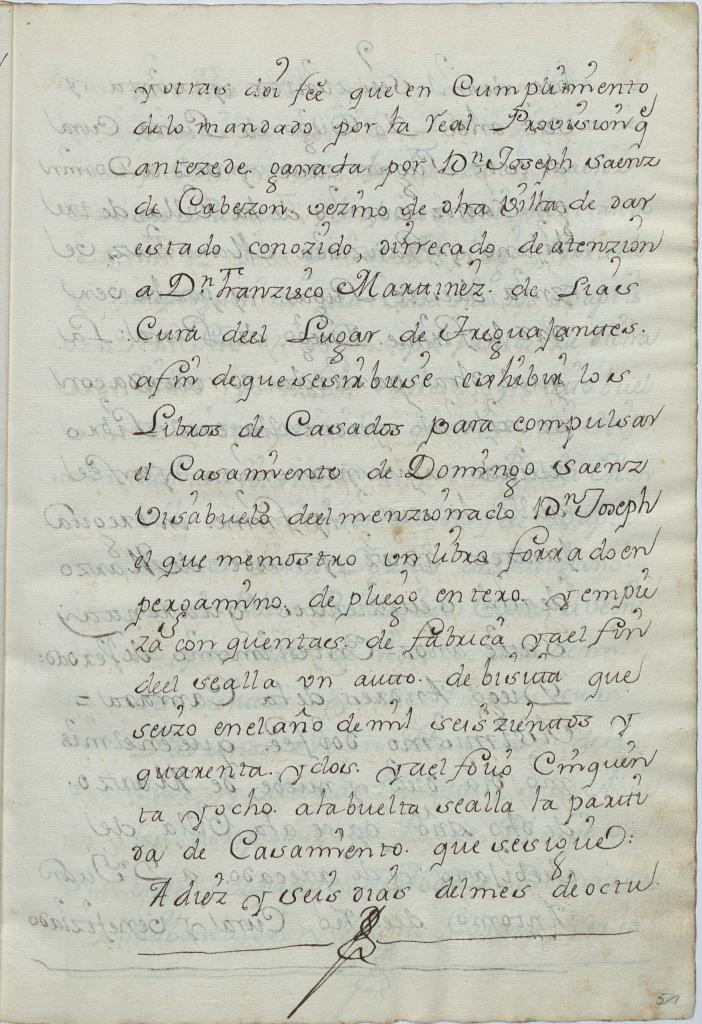 y otras doi feê que en Cumplimiento
delo mandado por la Real Provision q̃
antezede. ganada por Dn Joseph saenz
de Cabezon. vezino de dha Villa de dar
estado conozido, di Recado de atenzion
a Dn Franzisco Martinez. de Lias
Cura deel Lugar de Treguajantes.
afin de que sesirbiese exhibir los
Libros de Casados para compulsar
el Casamiento de Domingo saenz
Visabuelo deel menzionado Dn Joseph
el que memostro un libro forrado en
pergamino. de pliego entero. y empie
za con quentas. de fabrica y ael fin
deel sealla un autto. de bisita que
seizo en el año de mil seis zienttos y
quarenta. y dos. y ael folio Cinquen
ta y ocho. ala buelta sealla la parti
da de Casamiento. que sesigue:
A diez y seis dias del mes de octu